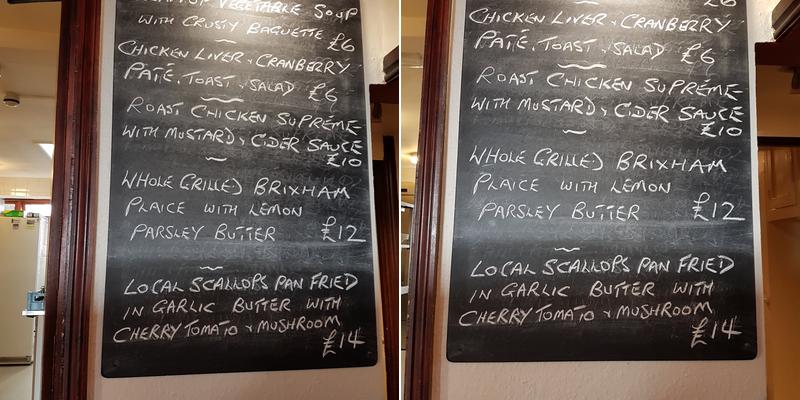 VEGETABLE SOUP
WITH CRUSTY BAGUETTE £6
CHICKEN LIVER & CRANBERRY
PATÉ, TOAST & SALAD £6
ROAST CHICKEN SUPRÉME
WITH MUSTARD & CIDER SAUCE
£10
WHOLE GRILLED BRIXHAM
PLAICE WITH LEMON
PARSLEY BUTTER £12
LOCAL SCALLOPS PAN FRIED
IN GARLIC BUTTER WITH
CHERRY TOMATO & MUSHROOM
£14
£6
CHICKEN LIVER & CRANBERRY
PATÉ, TOAST & SALAD £6
ROAST CHICKEN SUPRÉME
WITH MUSTARD & CIDER SAUCE
£10
WHOLE GRILLED BRIXHAM
PLAICE WITH LEMON
PARSLEY BUTTER £12
LOCAL SCALLOPS PAN FRIED
IN GARLIC BUTTER WITH
CHERRY TOMATO & MUSHROOM
£14